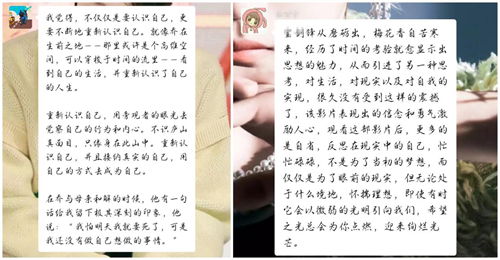 我觉得，不仅仅是要认识自己，更
要不断地重新认识自己。就像乔在
生前之地——那里或许是个高维空
间，可以穿梭于时间的流里——看
到自己的生活，并重新认识了自己
的人生。
重新认识自己，用旁观者的眼光去
觉察自己的行为和内心。不识庐山
真面目，只缘身在此山中。重新认
识自己，并且接纳真实的自己，用
自己的方式去成为自己。
在乔与母亲和解的时候，他有一句
话给我留下极其深刻的印象，他
说：“我怕明天我就要死了，可是
我还没有做自己想做的事情。”
宝剑锋从磨砺出，梅花香自苦寒
来，经历了时间的考验就愈显示出
思想的魅力，从而引进了另一种思
考，对生活，对现实以及对自我的
实现，很久没有受到这样的震撼
了，该影片表现出的信念和勇气激
励人心，观看这部影片后，更多的
是自省，反思在现实中的自己，忙
忙碌碌，不是为了当初的梦想，而
仅仅是为了眼前的现实，但无论处
于什么境地，怀揣理想，即使有时
它会以微弱的光明引向我们，希望
之光总会为你点燃，迎来绚烂光
芒。